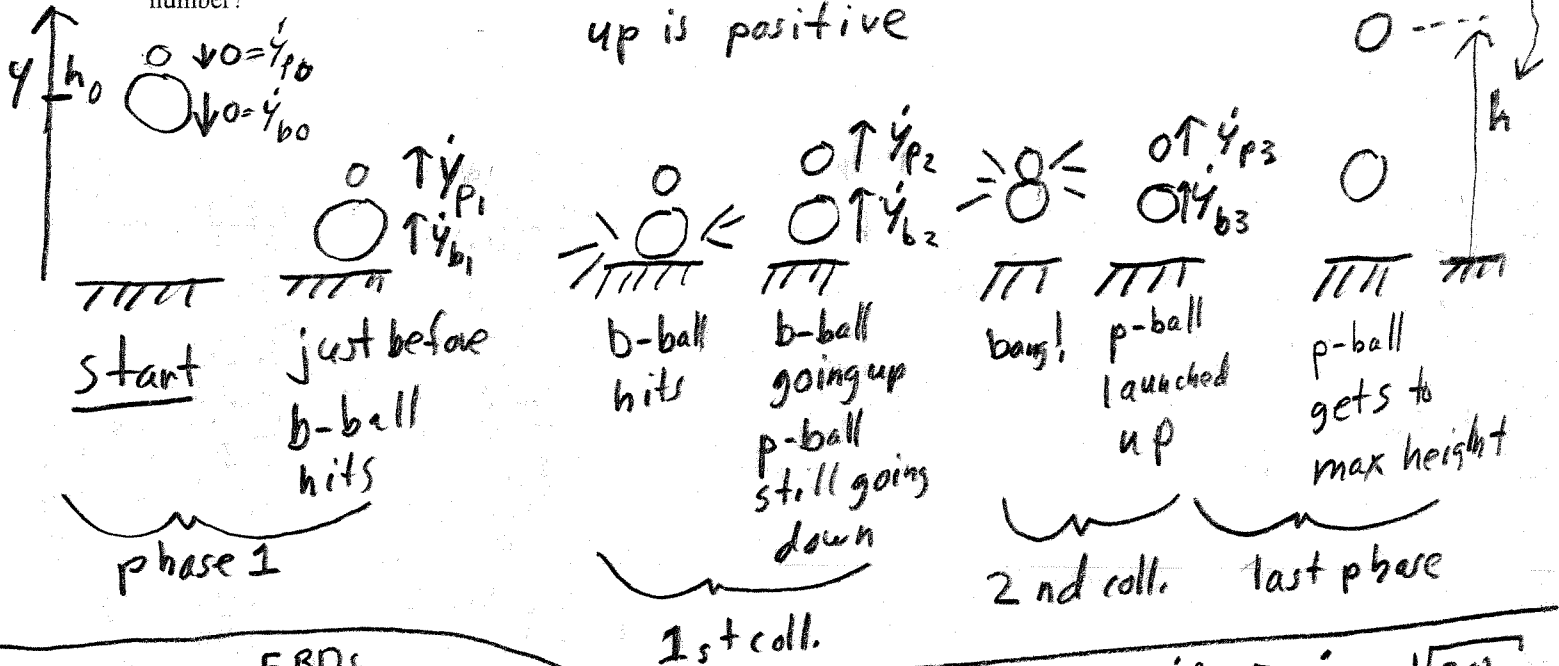 number?
up is positive
y
h₀
↓0=ẏp0
↓0=ẏb0
↑ẏp1
↑ẏb1
↑ẏp2
↑ẏb2
↑ẏp3
↑ẏb3
h
start
just before
b-ball
hits
b-ball
hits
b-ball
going up
p-ball
still going
down
bang!
p-ball
launched
up
p-ball
gets to
max height
phase 1
1st coll.
2nd coll.
last phase
FBDs